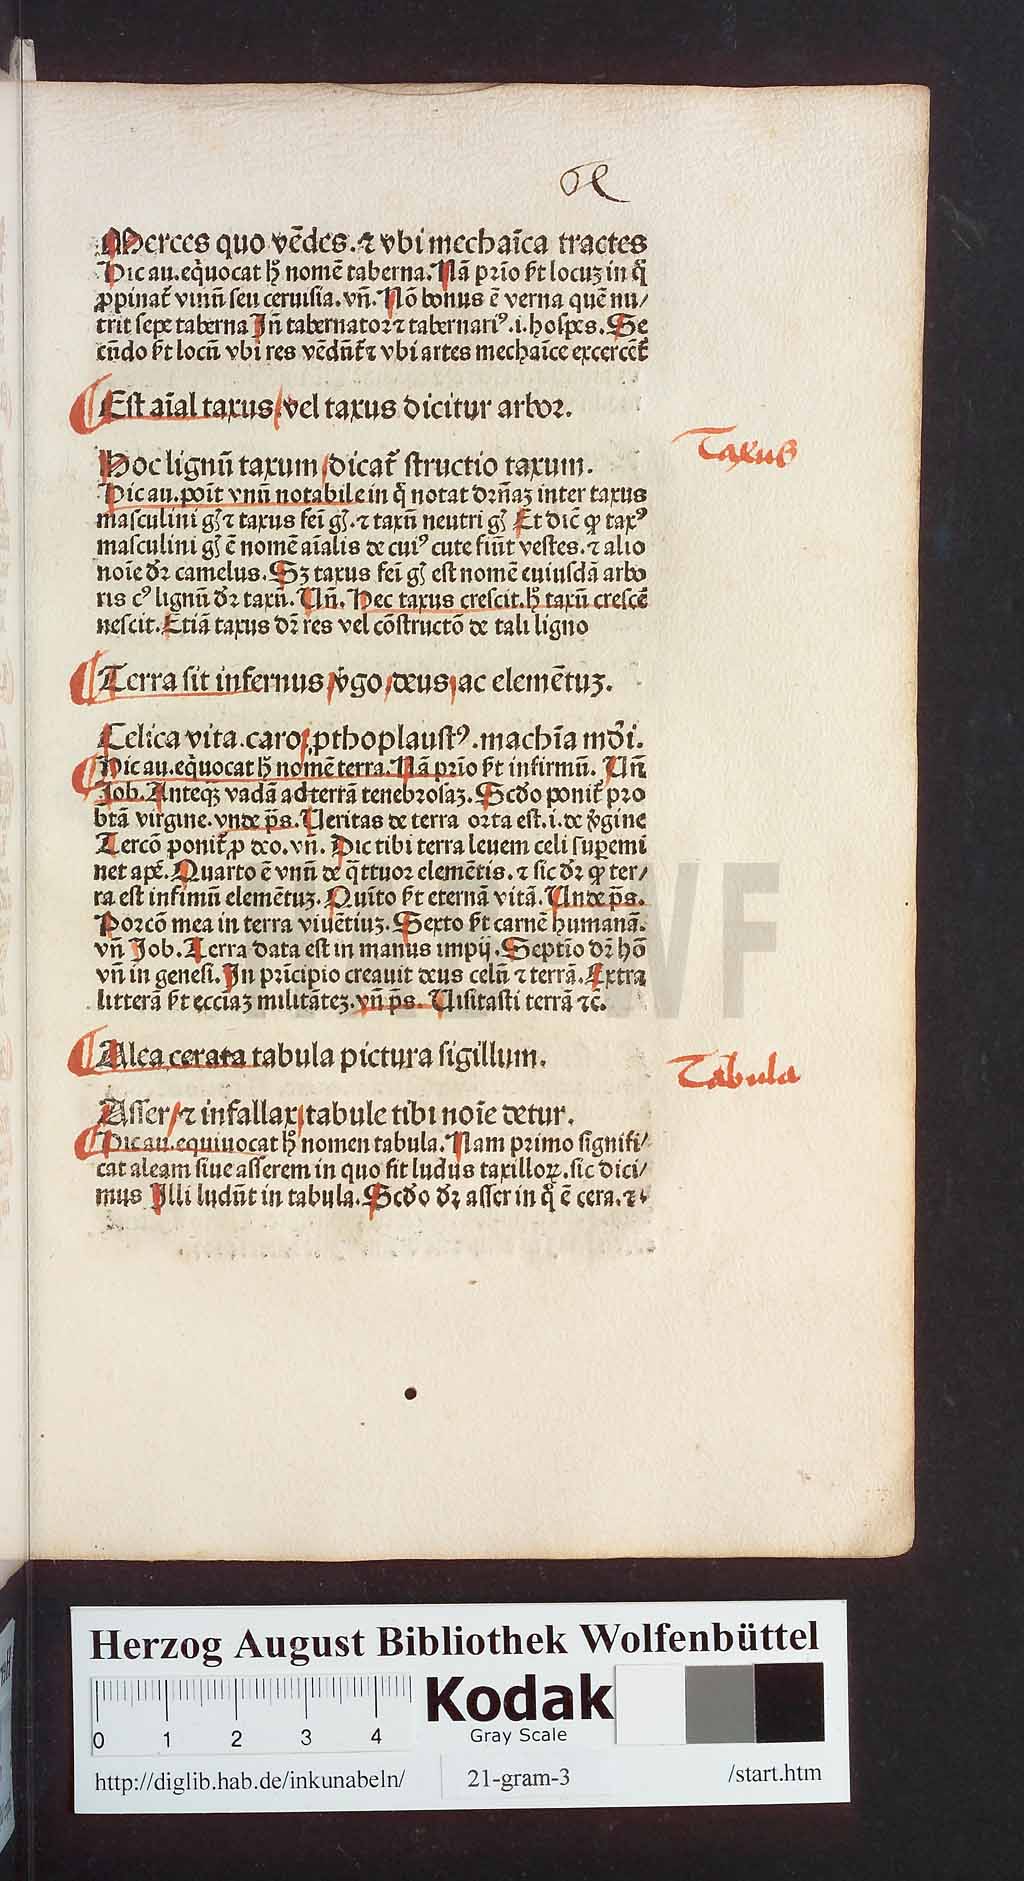 Merces quo vēdes. ⁊ vbi mechaīca tractes
Hic au. eq̄uocat hͦ nomē taberna. Nā prīo s̄t locuꝫ in q̄
ꝓpinat᷑ vinū seu ceruisia. vn̄. Nō bonus ē verna quē nu/
trit sepe taberna Jn̄ tabernator ⁊ tabernariꝰ .i. hospes. Se
cūdo s̄t locū vbi res vēdūt᷑ ⁊ vbi artes mechaīce excercēt᷑
Est aīal taxus vel taxus dicitur arbor.
Taxus
Hoc lignū taxum dicat᷑ structio taxum.
Hic au. poīt vnū notabile in q̄ notat drn̄aꝫ inter taxus
masculini gͥꝭ ⁊ taxus feī gͥꝭ. ⁊ taxū neutri gͥꝭ Et dic̄ ꝙ taxꝰ
masculini gͥꝭ ē nomē aīalis de cuiꝰ cute fiūt vestes. ⁊ alio
noīe dr̄ camelus. Sꝫ taxus feī gͥꝭ est nomē cuiusdā arbo
ris cꝰ lignū dr̄ taxū. Un̄. Hec taxus crescit. hͦ taxū crescē
nescit. Etiā taxus dr̄ res vel cōstructō de tali ligno
Terra sit infernus v̄go deus ac elemētuꝫ.
Celica vita. caro, pthoplaustꝰ. machīa mūdi.
Hic au. eq̄uocat hͦ nomē terra. Nā prīo s̄t infirmū. Un̄
Job. Anteqꝫ vadā ad terrā tenebrosaꝫ. Scd̄o ponit᷑ pro
btā virgine. vnde p̄s. Ueritas de terra orta est. i. de v̄gine
Tercō ponit᷑ ꝓ deo. vn̄. Hic tibi terra leuem celi supemi
net apex̄. Quarto ē vnū de q̄ttuor elemētis. ⁊ sic dr̄ ꝙ ter/
ra est infimū elemētuꝫ. Quīto s̄t eternā vitā. Unde p̄s.
Porcō mea in terra viuētiuꝫ. Sexto s̄t carnē humanā.
vn̄ Job. Terra data est in manus impij. Septīo dr̄ hō
vn̄ in genesi. Jn prīcipio creauit deus celū ⁊ terrā. Extra
litterā s̄t ecc̄iaꝫ militāteꝫ. vn̄ p̄s. Uisitasti terrā ⁊c̄.
Alea cerata tabula pictura sigillum.
Tabula
Asser ⁊ infallax tabule tibi noīe detur.
Hic au. equiuocat hͦ nomen tabula. Nam primo signifi/
cat aleam siue asserem in quo fit ludus taxilloꝝ. sic dici/
mus Jlli ludūt in tabula. Scd̄o dr̄ asser in q̄ ē cera. ⁊
HAB WF
Herzog August Bibliothek Wolfenbüttel
0 1 2 3 4
Kodak
Gray Scale
http://diglib.hab.de/inkunabeln/ 21-gram-3 /start.htm